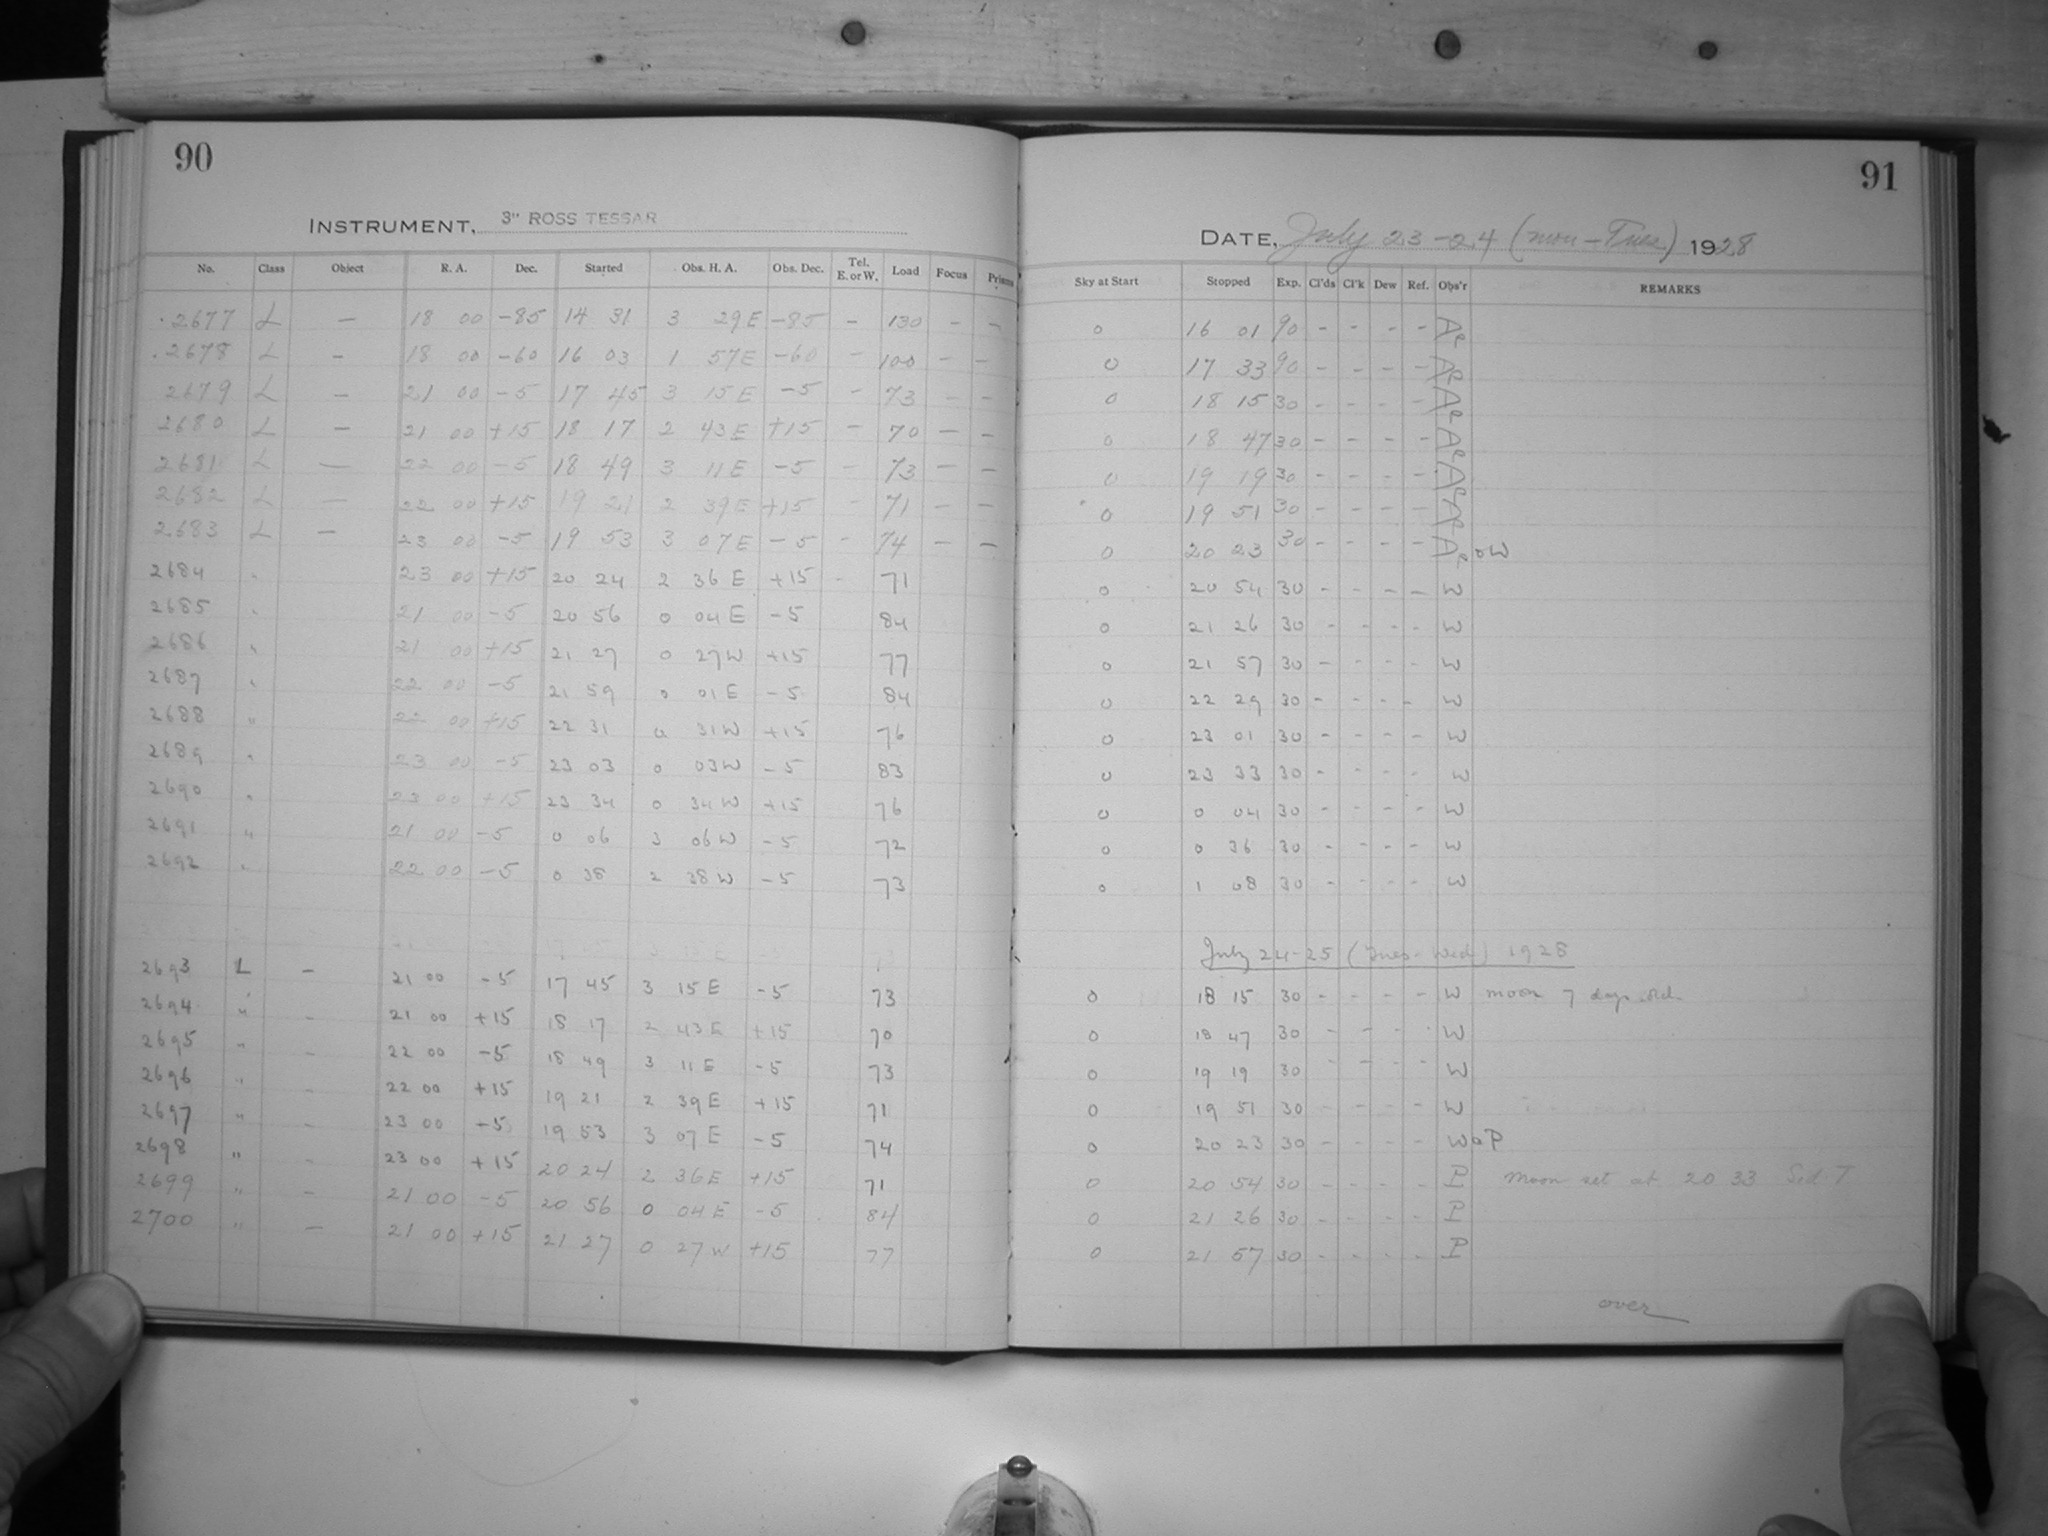 90
INSTRUMENT, 3" ROSS TESSAR
No. Class Object R. A. Dec. Started Obs. H. A. Obs. Dec. Tel. E. or W. Load Focus Prisms
2677 L — 18 00 -85 14 31 3 29 E -85 - 130 - -
2678 L - 18 00 -60 16 03 1 57 E -60 - 100 - -
2679 L - 21 00 -5 17 45 3 15 E -5 - 73 - -
2680 L - 21 00 +15 18 17 2 43 E +15 - 70 - -
2681 L — 22 00 -5 18 49 3 11 E -5 - 73 - -
2682 L — 22 00 +15 19 21 2 39 E +15 - 71 - -
2683 L — 23 00 -5 19 53 3 07 E -5 - 74 - -
2684 " 23 00 +15 20 24 2 36 E +15 - 71
2685 " 21 00 -5 20 56 0 04 E -5 84
2686 " 21 00 +15 21 27 0 27 W +15 77
2687 " 22 00 -5 21 59 0 01 E -5 84
2688 " 22 00 +15 22 31 0 31 W +15 76
2689 " 23 00 -5 23 03 0 03 W -5 83
2690 " 23 00 +15 23 34 0 34 W +15 76
2691 " 21 00 -5 0 06 3 06 W -5 72
2692 " 22 00 -5 0 38 2 38 W -5 73
2693 L - 21 00 -5 17 45 3 15 E -5 73
2694 " - 21 00 +15 18 17 2 43 E +15 70
2695 " - 22 00 -5 18 49 3 11 E -5 73
2696 " - 22 00 +15 19 21 2 39 E +15 71
2697 " - 23 00 -5 19 53 3 07 E -5 74
2698 " - 23 00 +15 20 24 2 36 E +15 71
2699 " - 21 00 -5 20 56 0 04 E -5 84
2700 " — 21 00 +15 21 27 0 27 W +15 77
91
DATE, July 23-24 (Mon-Tues) 1928
Sky at Start Stopped Exp. Cl'ds Cl'k Dew Ref. Obs'r REMARKS
0 16 01 90 - - - - Ae
0 17 33 90 - - - - Ae
0 18 15 30 - - - - Ae
0 18 47 30 - - - - Ae
0 19 19 30 - - - - Ae
0 19 51 30 - - - - Ae
0 20 23 30 - - - - Ae o W
0 20 54 30 - - - - W
0 21 26 30 - - - - W
0 21 57 30 - - - - W
0 22 29 30 - - - - W
0 23 01 30 - - - - W
0 23 33 30 - - - - W
0 0 04 30 - - - - W
0 0 36 30 - - - - W
0 1 08 30 - - - - W
July 24-25 (Tues-Wed) 1928
0 18 15 30 - - - - W moon 7 days old
0 18 47 30 - - - - W
0 19 19 30 - - - - W
0 19 51 30 - - - - W
0 20 23 30 - - - - W o P
0 20 54 30 - - - - P Moon set at 20 33 Sid T
0 21 26 30 - - - - P
0 21 57 30 - - - - P
over